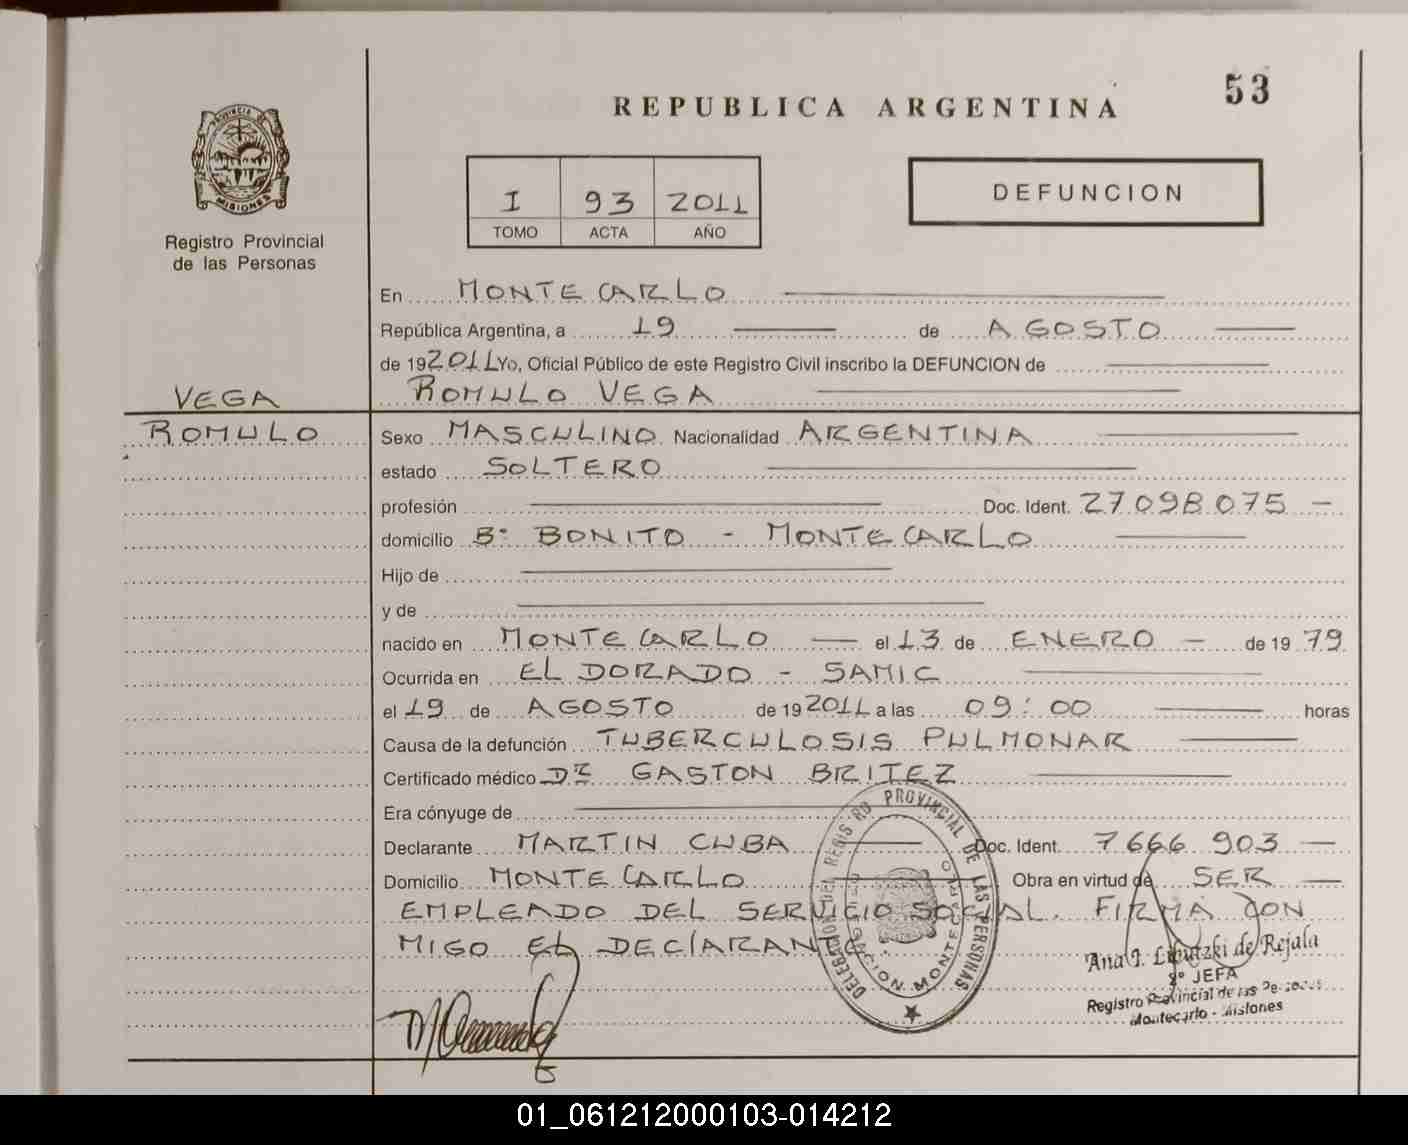 53
REPUBLICA ARGENTINA
PROVINCIA DE
MISIONES
I 93 2011
TOMO ACTA AÑO
DEFUNCION
Registro Provincial
de las Personas
En MONTECARLO
República Argentina, a 19 de AGOSTO
de 192011 Yo, Oficial Público de este Registro Civil inscribo la DEFUNCION de
VEGA
ROMULO VEGA
ROMULO
Sexo MASCULINO Nacionalidad ARGENTINA
estado SOLTERO
profesión Doc. Ident. 27098075 -
domicilio B° BONITO - MONTECARLO
Hijo de
y de
nacido en MONTECARLO el 13 de ENERO de 1979
Ocurrida en ELDORADO - SAMIC
el 19 de AGOSTO de 192011 a las 09:00 horas
Causa de la defunción TUBERCULOSIS PULMONAR
Certificado médico Dr GASTON BRITEZ
Era cónyuge de
Declarante MARTIN CUBA Doc. Ident. 7666903
Domicilio MONTECARLO Obra en virtud de SER
EMPLEADO DEL SERVICIO SOCIAL. FIRMA CON
MIGO EL DECLARANTE
DELEGACION DEL REGISTRO PROVINCIAL DE LAS PERSONAS
Ana I. de Rejala
JEFA
Registro Provincial de las Personas
Montecarlo - Misiones
01_061212000103-014212